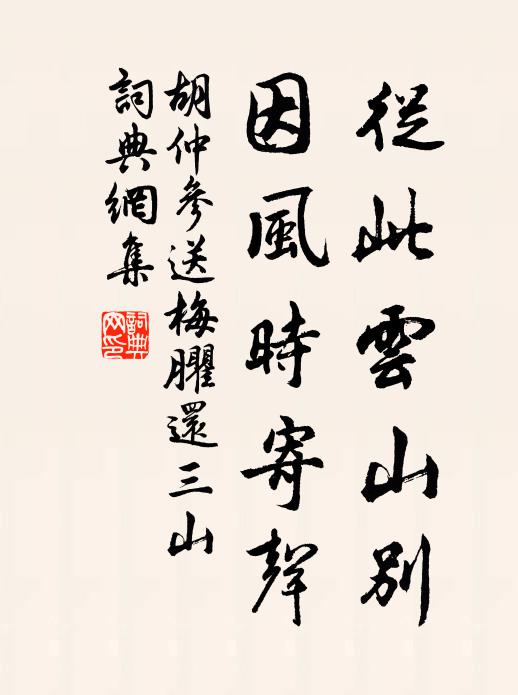 從此雲山別
因風時寄聲
胡仲參送梅臞還三山
詞典網集
詞典網印